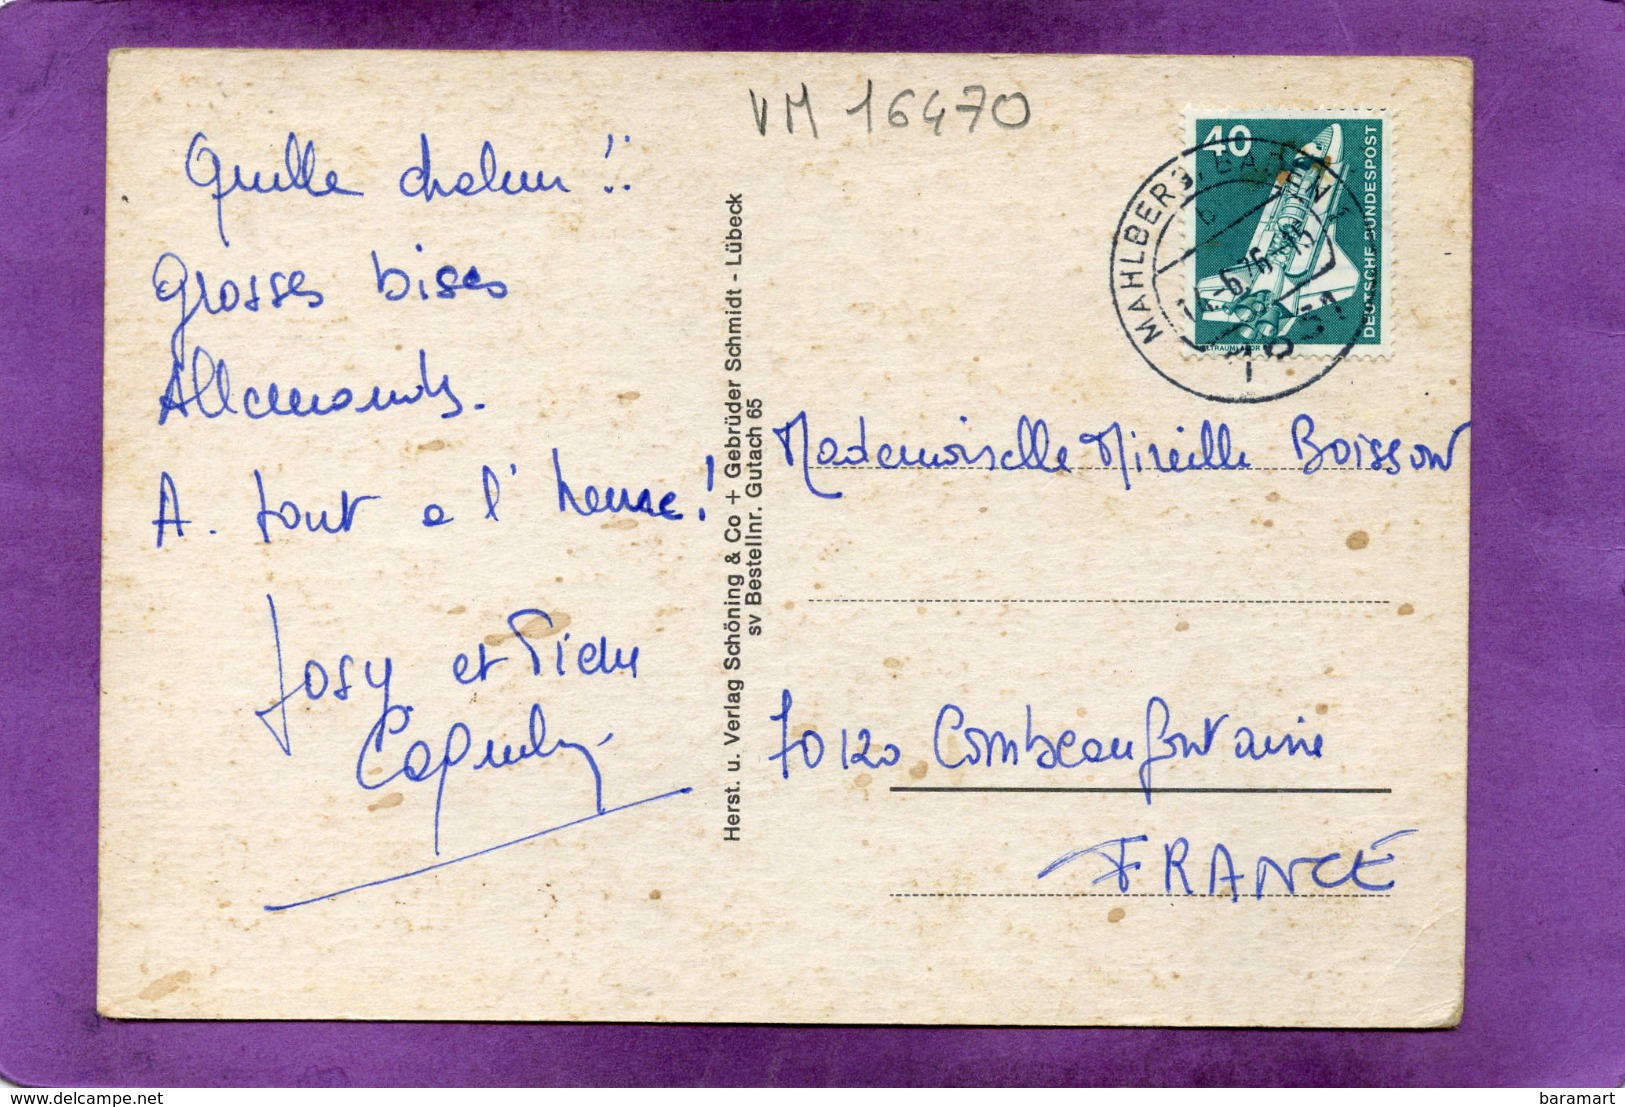 VM 16470
Quelle chaleur !!
Grosses bises
Allemandes.
A. tout a l'heure !
Josy et
Herst. u. Verlag Schöning & Co + Gebrüder Schmidt - Lübeck
sv Bestellnr. Gutach 65
40
DEUTSCHE BUNDESPOST
MAHLBERG, BADEN
Mademoiselle Mireille Boisson
70120 Combeaufontaine
FRANCE
delcampe.net
baramart